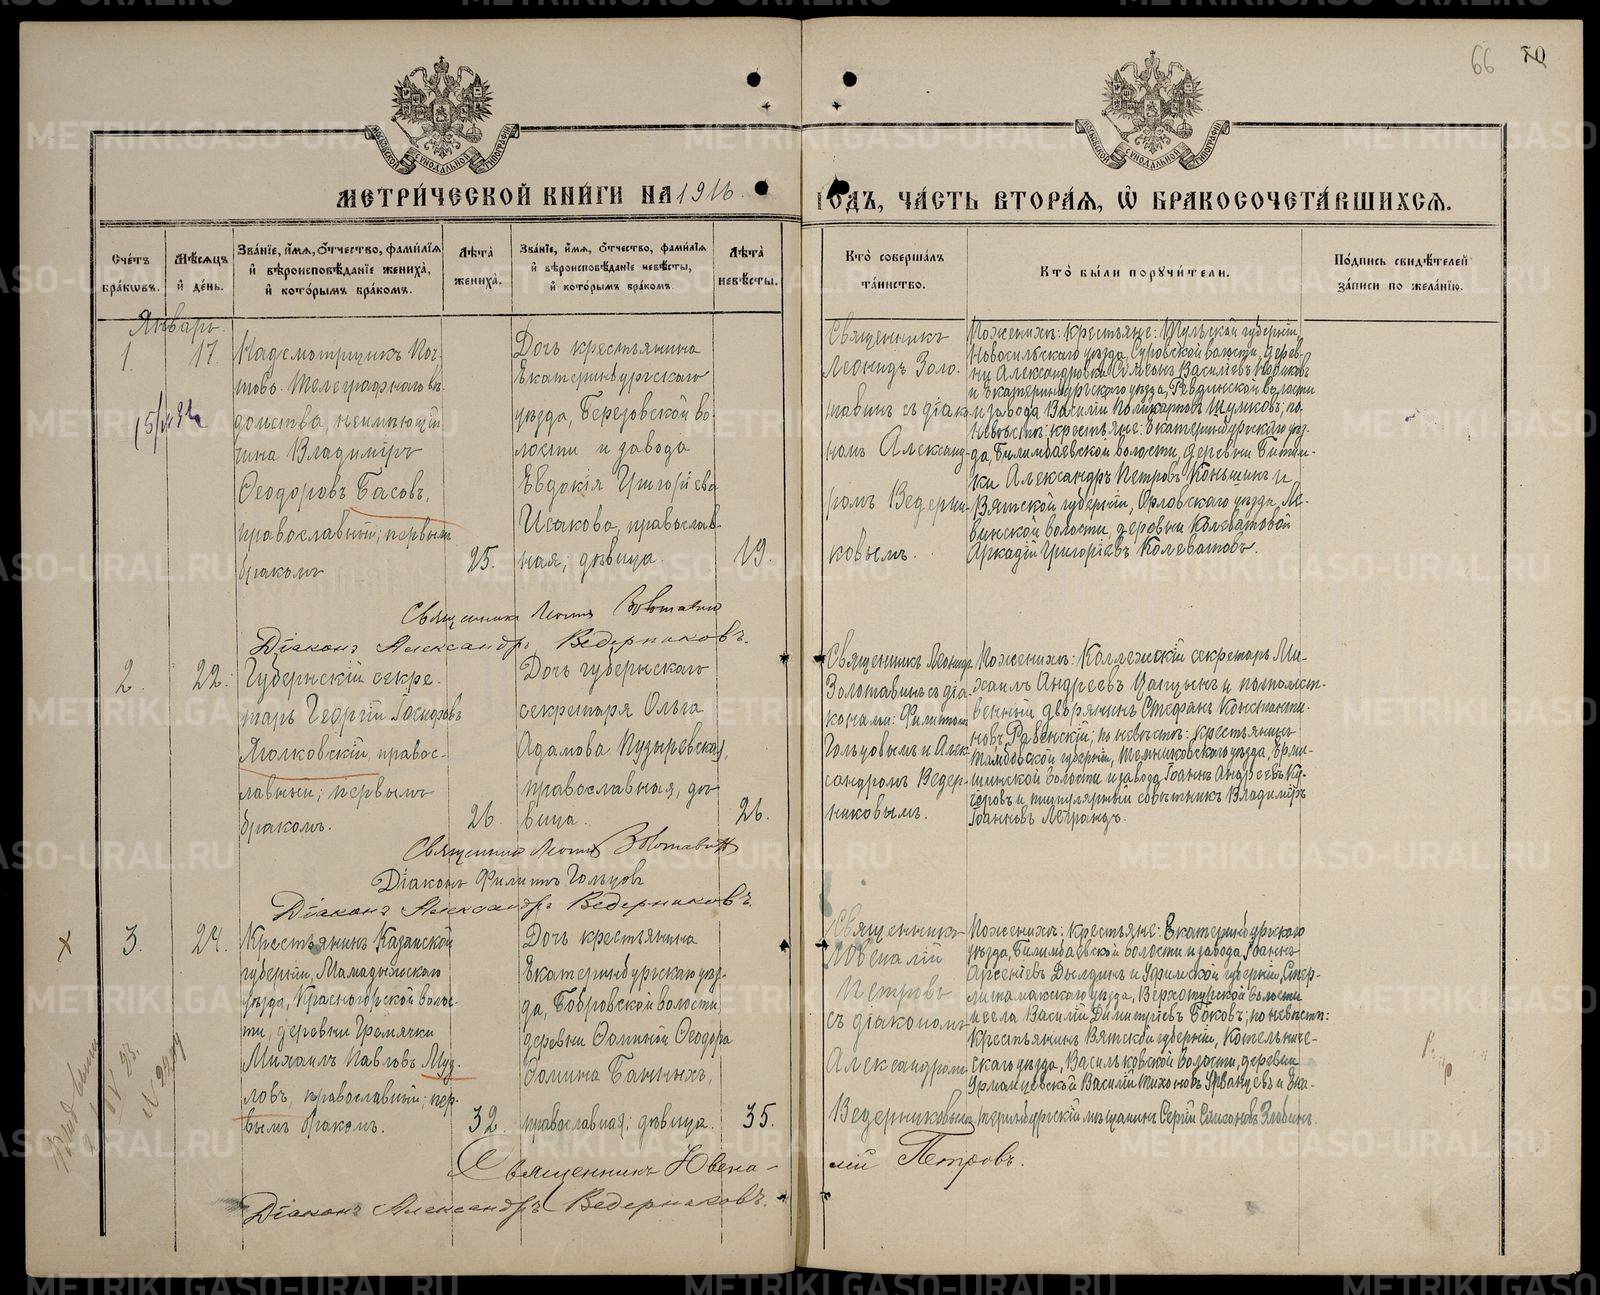 66 70
МЕТРИ́ЧЕСКОЙ КНИ́ГИ НА 1916. ГОДЪ, ЧА́СТЬ ВТОРА́Я, Ѡ БРАКОСОЧЕТА́ВШИХСЯ.
Сче́тъ бра́кωвъ.
Мѣ́сяцъ и́ де́нь.
Зва́нїе, и́мя, о́тчество, фами́лїя и́ вѣроисповѣ́данїе жениха̀, и́ кото́рымъ бра́комъ.
Лѣта̀ жениха̀.
Зва́нїе, и́мя, о́тчество, фами́лїя и́ вѣроисповѣ́данїе невѣ́сты, и́ кото́рымъ бра́комъ.
Лѣта̀ невѣ́сты.
Кто̀ соверша́лъ та́инство.
Кто̀ бы́ли поручи́тели.
По́дпись свидѣ́телей за́писи по жела́нїю.
Январь.
1.
17.
Надсмотрщикъ Поч-
тово-Телеграфнаго вѣ-
домства, неимѣющій
чина Владиміръ
Ѳеодоровъ Басовъ,
православный; первымъ
бракомъ
25.
Дочь крестьянина
Екатеринбургскаго
уѣзда, Березовской во-
лости и завода
Евдокія Григоріева
Исакова, православ-
ная; дѣвица.
19.
Священникъ
Леонидъ Золо-
тавинъ съ діако-
номъ Александ-
ромъ Ведерни-
ковымъ.
По женихѣ: крестьяне: Тульской губерніи,
Новосильскаго уѣзда, Суровской волости, дерев-
ни Александровки Симеонъ Василіевъ
и Екатеринбургскаго уѣзда, Ревдинской волости
и завода Василій Поликарповъ Шумковъ; по
невѣстѣ: крестьяне: Екатеринбургскаго уѣз-
да, Билимбаевской волости, деревни Битим-
ки Александръ Петровъ Коньшинъ и
Вятской губерніи, Орловскаго уѣзда, Ле-
винской волости, деревни Колеватовой
Аркадій Григоріевъ Колеватовъ.
Священникъ Леонидъ Золотавинъ
Діаконъ Александръ Ведерниковъ.
2.
22.
Губернскій секре-
тарь Георгій Іосифовъ
Ямолковскій, правос-
лавный; первымъ
бракомъ.
26.
Дочь губернскаго
секретаря Ольга
Адамова Пузыревская,
православная, дѣ-
вица.
26.
Священникъ Леонидъ
Золотавинъ съ діа-
конами: Филиппомъ
Гольцовымъ и Алек-
сандромъ Ведер-
никовымъ.
По женихѣ: Коллежскій секретарь Ми-
хаилъ Андреевъ Цапцынъ и потомст-
венный дворянинъ Стефанъ Константи-
новъ Рабенскій; по невѣстѣ: крестьянинъ
Тамбовской губерніи, Темниковскаго уѣзда, Ерми-
шинской волости и завода Іоаннъ Андреевъ Ку-
черовъ и титулярный совѣтникъ Владиміръ
Іоанновъ Леграндъ.
Священникъ Леонидъ Золотавинъ
Діаконъ Филиппъ Гольцовъ
Діаконъ Александръ Ведерниковъ.
3.
24.
Крестьянинъ Казанской
губерніи, Мамадышскаго
уѣзда, Красногорской волос-
ти, деревни Гремячки
Михаилъ Павловъ Муз-
ловъ, православный; пер-
вымъ бракомъ.
32.
Дочь крестьянина
Екатеринбургскаго уѣз-
да, Бобровской волости,
деревни Ѳоминой Ѳеодора
Ѳомина Банныхъ,
православная; дѣвица.
35.
Священникъ
Ювеналій
Петровъ
съ діакономъ
Александромъ
Ведерниковымъ.
По женихѣ: крестьяне: Екатеринбургскаго
уѣзда, Билимбаевской волости и завода Іоаннъ
Арсеніевъ Дылдинъ и Уфимской губерніи, Стер-
литамакскаго уѣзда, Верхоторской волости
и села Василій Димитріевъ Боковъ; по невѣстѣ:
Крестьянинъ Вятской губерніи, Котельниче-
скаго уѣзда, Васильковской волости, деревни
Василій Тихоновъ Урванцевъ и Ека-
теринбургскій мѣщанинъ Сергій Самсоновъ
Священникъ Ювена-
лій Петровъ.
Діаконъ Александръ Ведерниковъ.